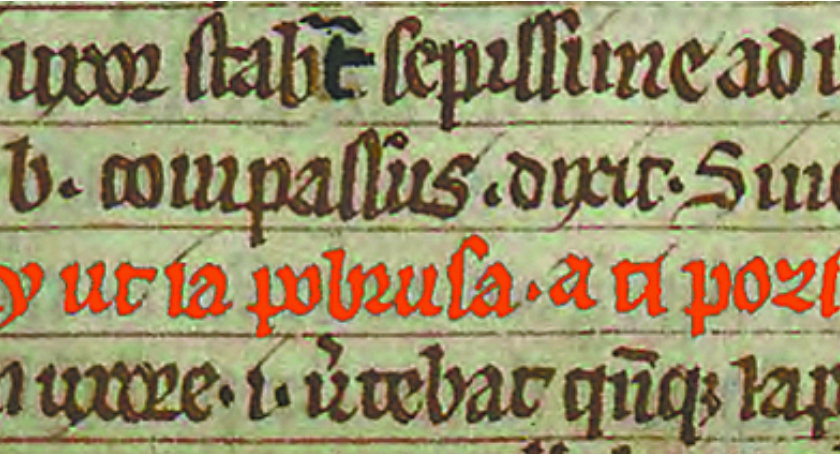 uxor stabt̄ sepissime ad
b. compassus. dixit. Sine
y ut ia pobrusa. a ti poziw
uxore. i. u̓tebat qn̄qꝫ lap